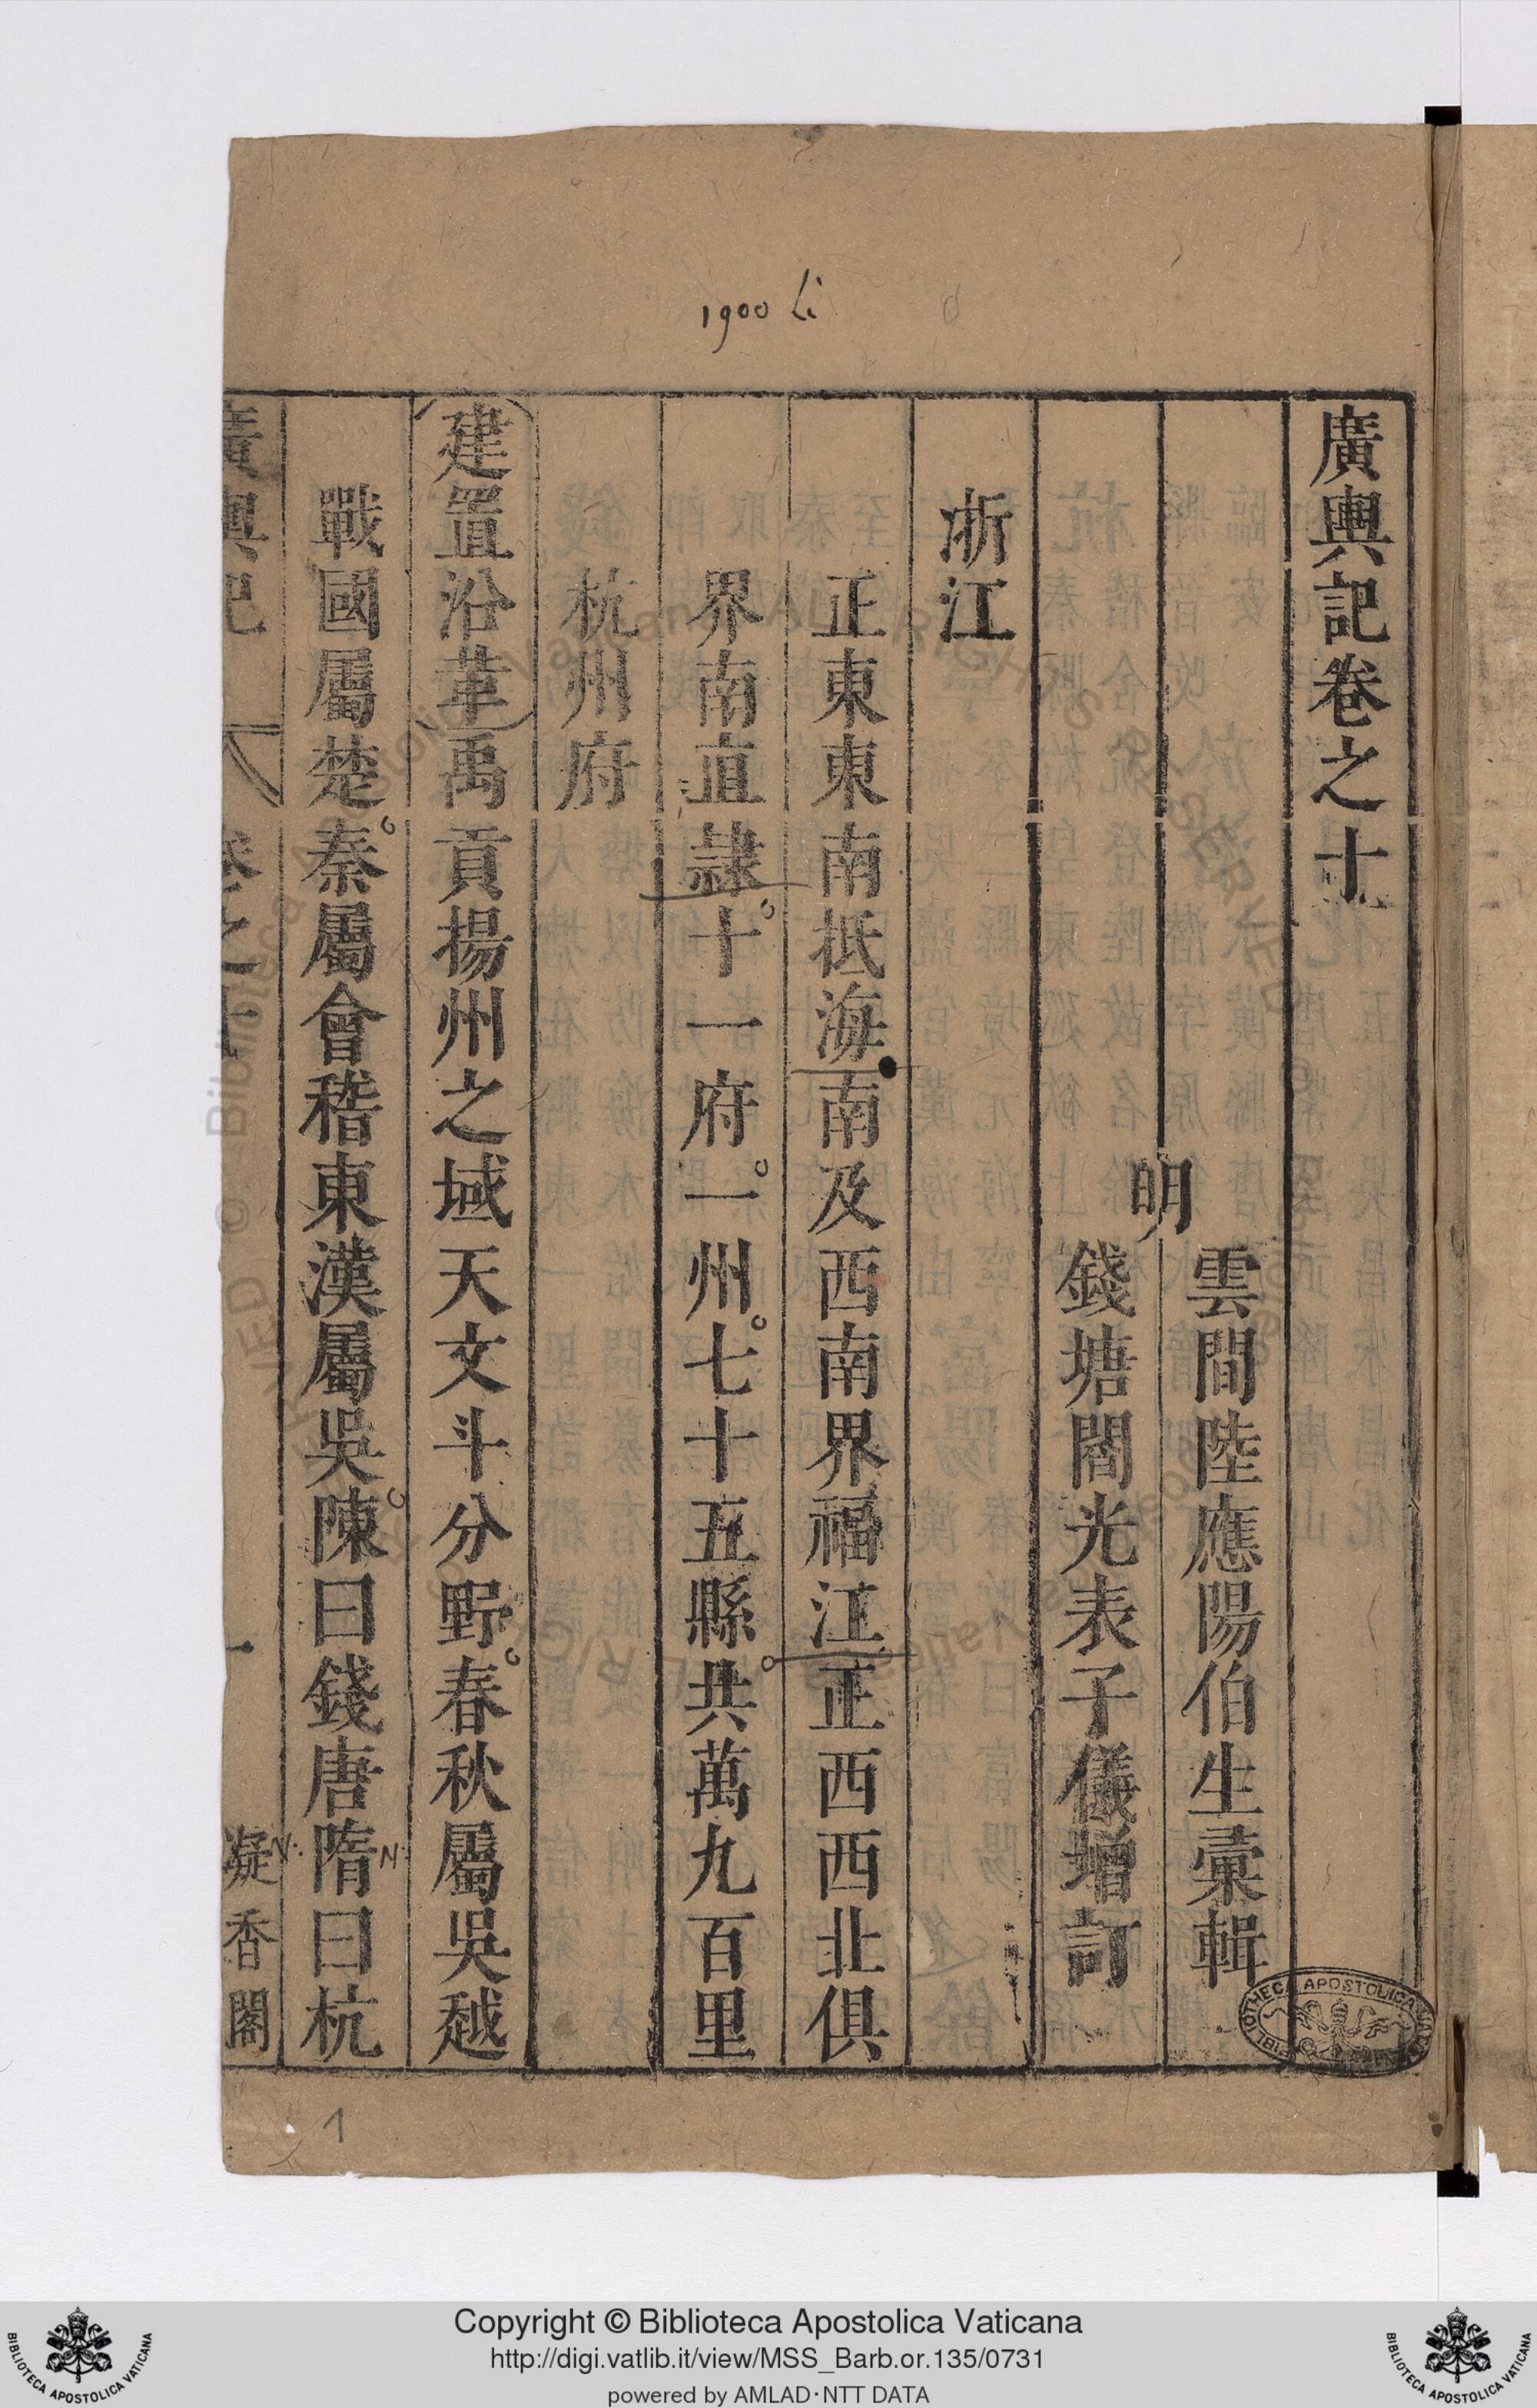 1900 Li
廣輿記卷之十
明
雲間陸應陽伯生彙輯
錢塘閻光表子儀增訂
浙江
正東東南抵海南及西南界福江正西西北俱
界南直隷十一府一州七十五縣共萬九百里
杭州府
建置沿革禹貢揚州之域天文斗分野春秋屬吳越
戰國屬楚秦屬會稽東漢屬吳陳曰錢唐隋曰杭
廣輿記 卷之十 一 凝香閣
1
BIBLIOTHECA APOSTOLICA VATICANA
Copyright © Biblioteca Apostolica Vaticana
http://digi.vatlib.it/view/MSS_Barb.or.135/0731
powered by AMLAD·NTT DATA
BIBLIOTECA APOSTOLICA VATICANA
BIBLIOTECA APOSTOLICA VATICANA